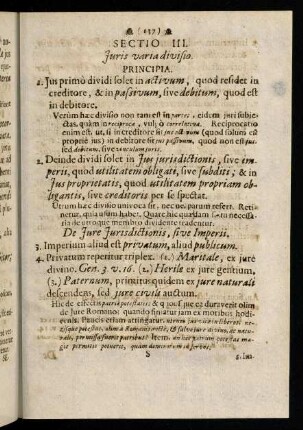 ( 137 )
SECTIO III.
Juris varia divisio.
PRINCIPIA.
1. Jus primò dividi solet in activum, quod residet in
creditore, & in passivum, sive debitum, quod est
in debitore.
Verùm hæc divisio non tam est in partes, eidem juri subje-
ctas, quàm in reciproca, vulgò correlativa. Reciprocatio
enim est, ut, si in creditore sit jus activum (quod solum est
propriè jus) in debitore sit jus passivum, quod non est jus,
sed debitum, sive vinculum juris.
2. Deinde dividi solet in Jus jurisdictionis, sive im-
perii, quod utilitatem obligati, sive subditi; & in
Jus proprietatis, quod utilitatem propriam ob-
ligantis, sive creditoris per se spectat.
Utrum hæc divisio univoca sit, nec ne, parum refert. Reti-
netur, quia usum habet. Quare hic quædam
de utroque membro dividente tradentur.
De Jure Jurisdictionis, sive Imperii.
3. Imperium aliud est privatum, aliud publicum.
4. Privatum reperitur triplex. (1.) Maritale, ex jure
divino. Gen. 3. v. 16. (2.) Herile ex jure gentium.
(3.) Paternum, primitus quidem ex jure naturali
descendens, sed jure civili auctum.
Hic de effectis patriæ potestatis; & quousque ea duraverit olim
de Jure Romano: quando finiatur jam ex moribus hodi-
ernis. Paucis etiam attingatur,
S